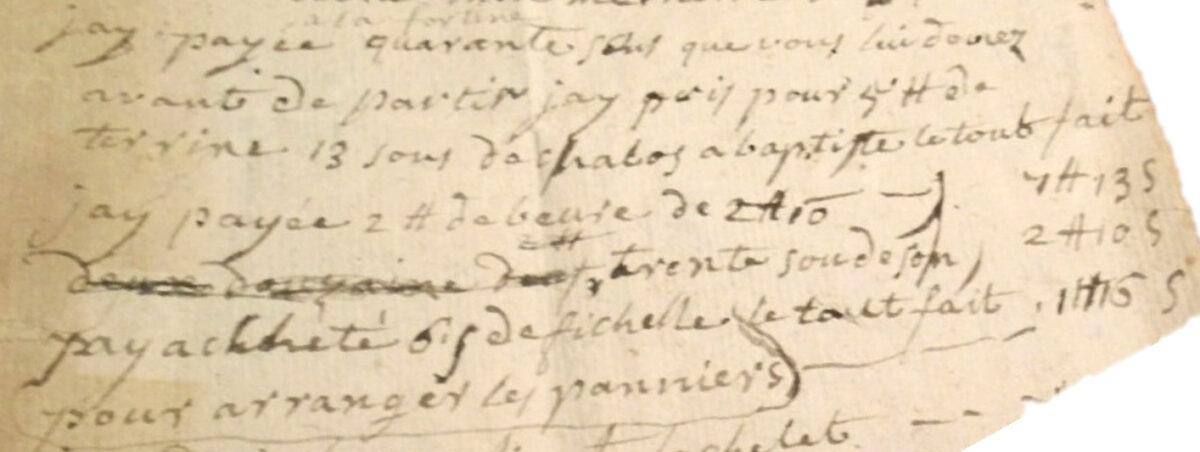 a la fortine
jay payée quarante sous que vous lui deviez
avant de partir jay pris pour 5 ₶ de
terrine 13 sous de a baptiste le tout fait
7 ₶ 13 S
jay payée 2 ₶ de beure de 2 ₶ 10
2 ₶ 10 S
trente sou de son
jay achheté 6 s de fichelle le tout fait 1 ₶ 16 S
pour arranger les panniers